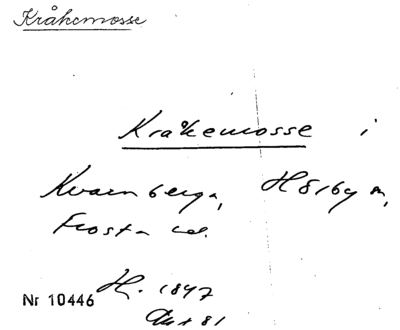 Kråkemosse
Kråkemosse i
Kvarnberga, Hörby sn,
Frosta hd.
H. 1847
Nr 10446
81